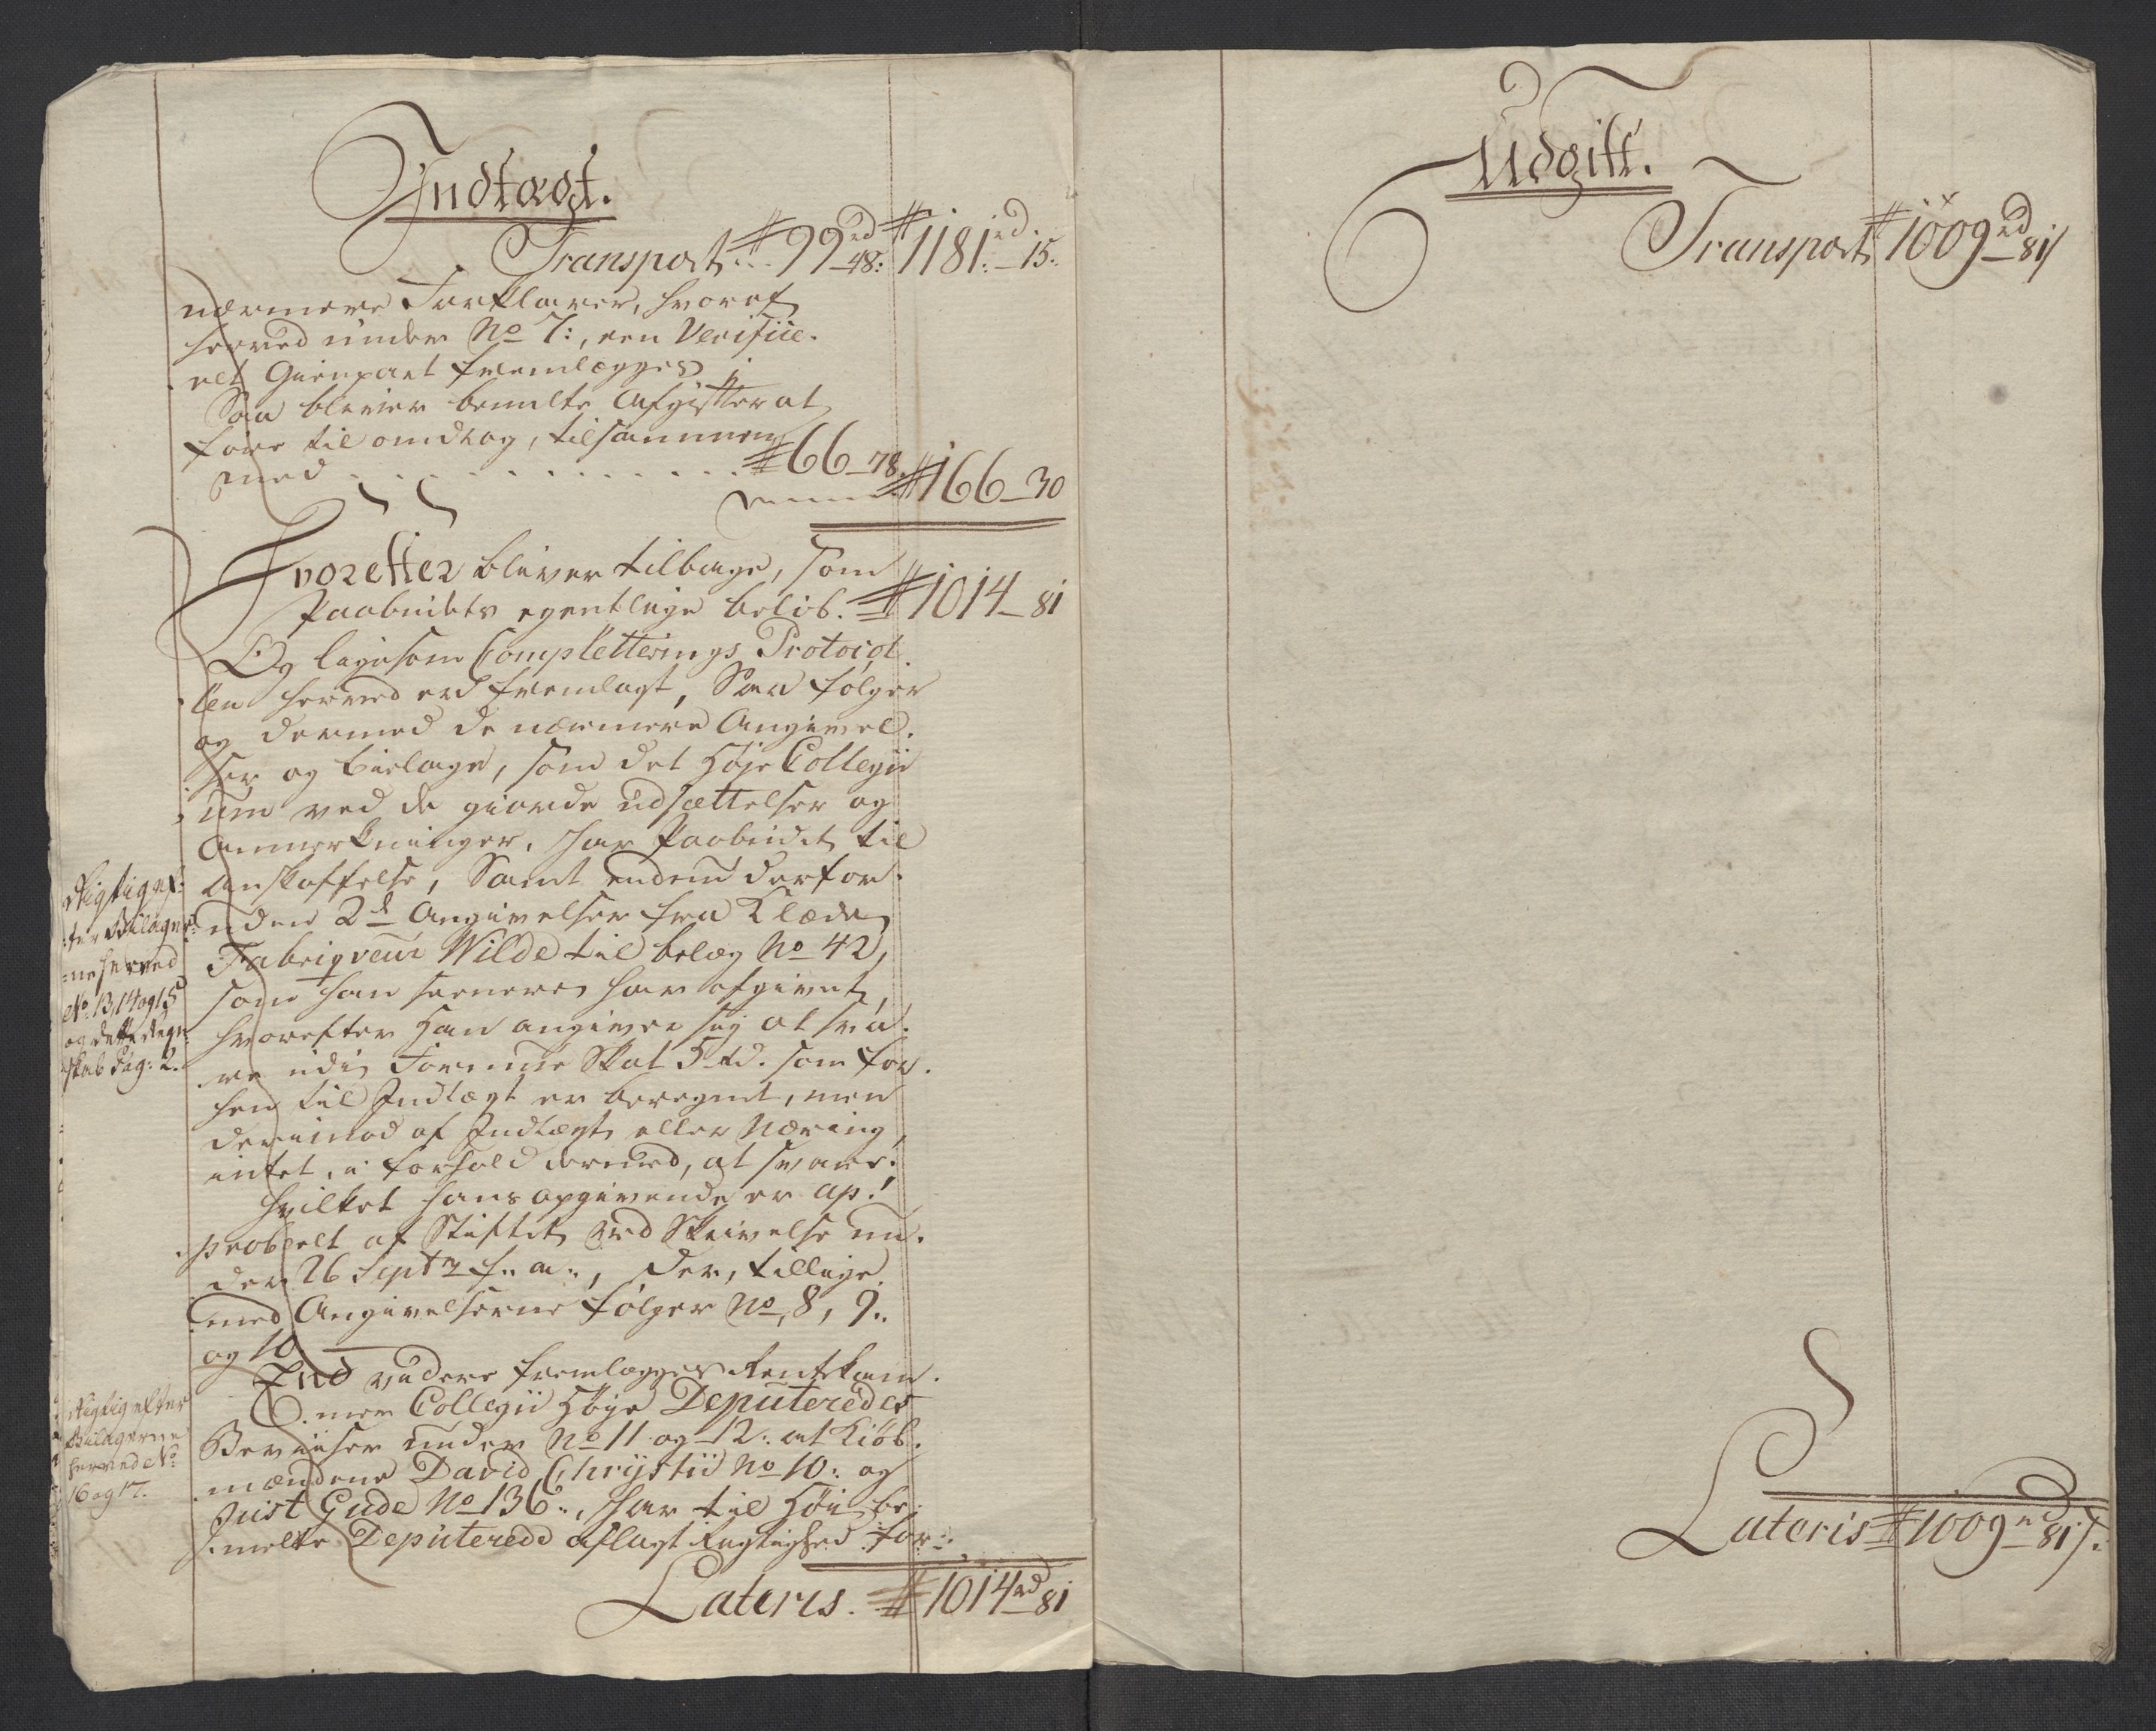 Indtægt.
Transport . . # 99 rd 48: # 1181: rd 15:
nærmere Forklarer, hvoraf
herved under No 7:, een Verificε-
relt Gienpart fremlægges
Saa blever bemelte Afgifter at
føre til omdrag, tilsammen
med . . . . . . . . . # 66 – 78.
# 166 – 30
Hvorefter bliver tilbage, som
Paabudets egentlige beløb. # 1014 – 81
Og ligesom Completterings Protocol-
len herved er fremlagt, Saa følger
og dermed de nærmere Angivel-
ser og bielage, som det Høje Collegi-
um ved de giorde udsættelser og
Anmerkninger, har Paabudet til
Anskaffelse, Samt endeni derfor-
uden 2de Angivelser fra Klæde
Fabriqveur Wilde til belæg No 42,
som han seenere har afgivet,
hvorefter Han angiver sig at sva-
re udi Formue Skat 5 rd. som for-
hen til Indtægt er beregnet, men
derimod af Indtægt eller Næring,
intet, i forhold dermed, at svare.
hvilket hans opgivende er ap-
probeelt af Stiftet ved Skrivelse un-
der 26 Septr f: a:, der, tillige
med Angivelserne følger No 8, 9:
og 10
End videre fremlægges Rentekam-
mer Collegii Høye Deputeredes
Beviiser under No 11 og 12: at Kiøb-
mændene David Chrystii No 10: og
Just Gude No 136:, har til Høi be-
melte Deputerede aflagt Rigtighed for:
Lateris. # 1014 rd 81
Rigtig ef-
ter Bilager-
ne herved
No 13, 14 og 15
og dette Regn-
skab Pag: 2.
Rigtig efter
Bilagerne
herved No
16 og 17.
Udgift.
Transport # 1009 rd 81/
Lateris # 1009 rd 81/.